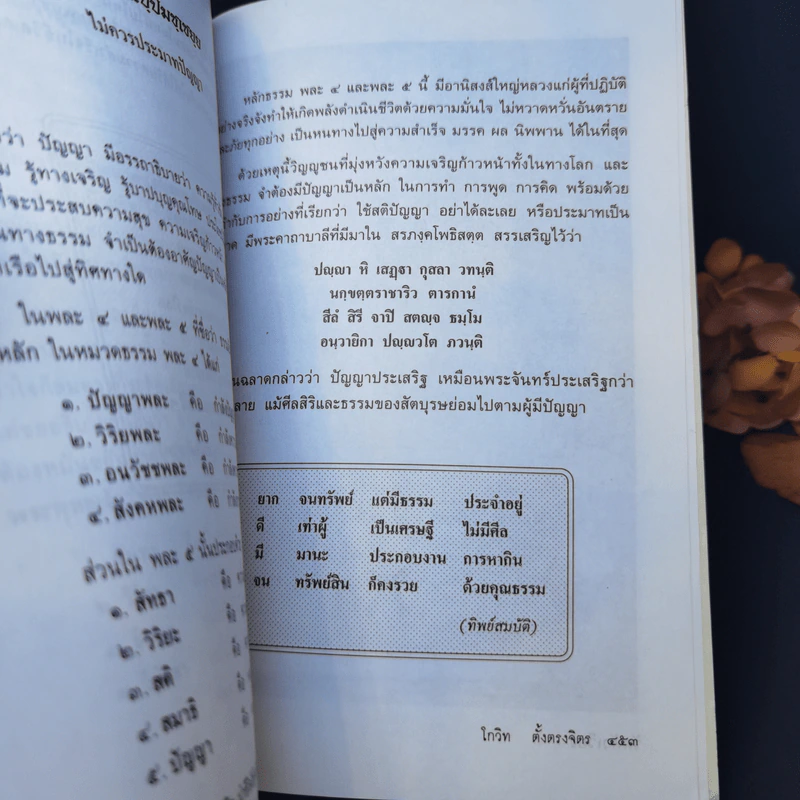 ไม่ควรประมาทปัญญา
ว่า ปัญญา มีอรรถาธิบายว่า ความรู้
รู้ทางเจริญ รู้บาปบุญคุณโทษ
ที่จะประสบความสุข ความเจริญก้าวหน้า
นทางธรรม จำเป็นต้องอาศัยปัญญา
เรือไปสู่ทิศทางใด
ในพละ ๔ และพละ ๕ ที่ชื่อว่า
หลัก ในหมวดธรรม พละ ๔ ได้แก่
๑. ปัญญาพละ คือ
๒. วิริยพละ คือ
๓. อนวัชชพละ คือ
๔. สังคหพละ คือ
ส่วนใน พละ ๕ นั้นประกอบ
๑. สัทธา คือ
๒. วิริยะ คือ
๓. สติ คือ
๔. สมาธิ คือ
๕. ปัญญา คือ
หลักธรรม พละ ๔ และพละ ๕ นี้ มีอานิสงส์ใหญ่หลวงแก่ผู้ที่ปฏิบัติ
อย่างจริงจังทำให้เกิดพลังดำเนินชีวิตด้วยความมั่นใจ ไม่หวาดหวั่นอันตราย
ะภัยทุกอย่าง เป็นหนทางไปสู่ความสำเร็จ มรรค ผล นิพพาน ได้ในที่สุด
ด้วยเหตุนี้วิญญูชนที่มุ่งหวังความเจริญก้าวหน้าทั้งในทางโลก และ
ธรรม จำต้องมีปัญญาเป็นหลัก ในการทำ การพูด การคิด พร้อมด้วย
กับการอย่างที่เรียกว่า ใช้สติปัญญา อย่าได้ละเลย หรือประมาทเป็น
าด มีพระคาถาบาลีที่มีมาใน สรภงฺคโพธิสตฺต สรรเสริญไว้ว่า
ปญฺญา หิ เสฏฺฐา กุสลา วทนฺติ
นกฺขตฺตราชาริว ตารกานํ
สีลํ สิรี จาปิ สตญฺจ ธมฺโม
อนฺวายิกา ปญฺญวโต ภวนฺติ
นฉลาดกล่าวว่า ปัญญาประเสริฐ เหมือนพระจันทร์ประเสริฐกว่า
ลาย แม้ศีลสิริและธรรมของสัตบุรุษย่อมไปตามผู้มีปัญญา
ยาก จนทรัพย์ แต่มีธรรม ประจำอยู่
ดี เท่าผู้ เป็นเศรษฐี ไม่มีศีล
มี มานะ ประกอบงาน การหากิน
จน ทรัพย์สิน ก็คงรวย ด้วยคุณธรรม
(ทิพย์สมบัติ)
โกวิท ตั้งตรงจิตร ๔๕๓